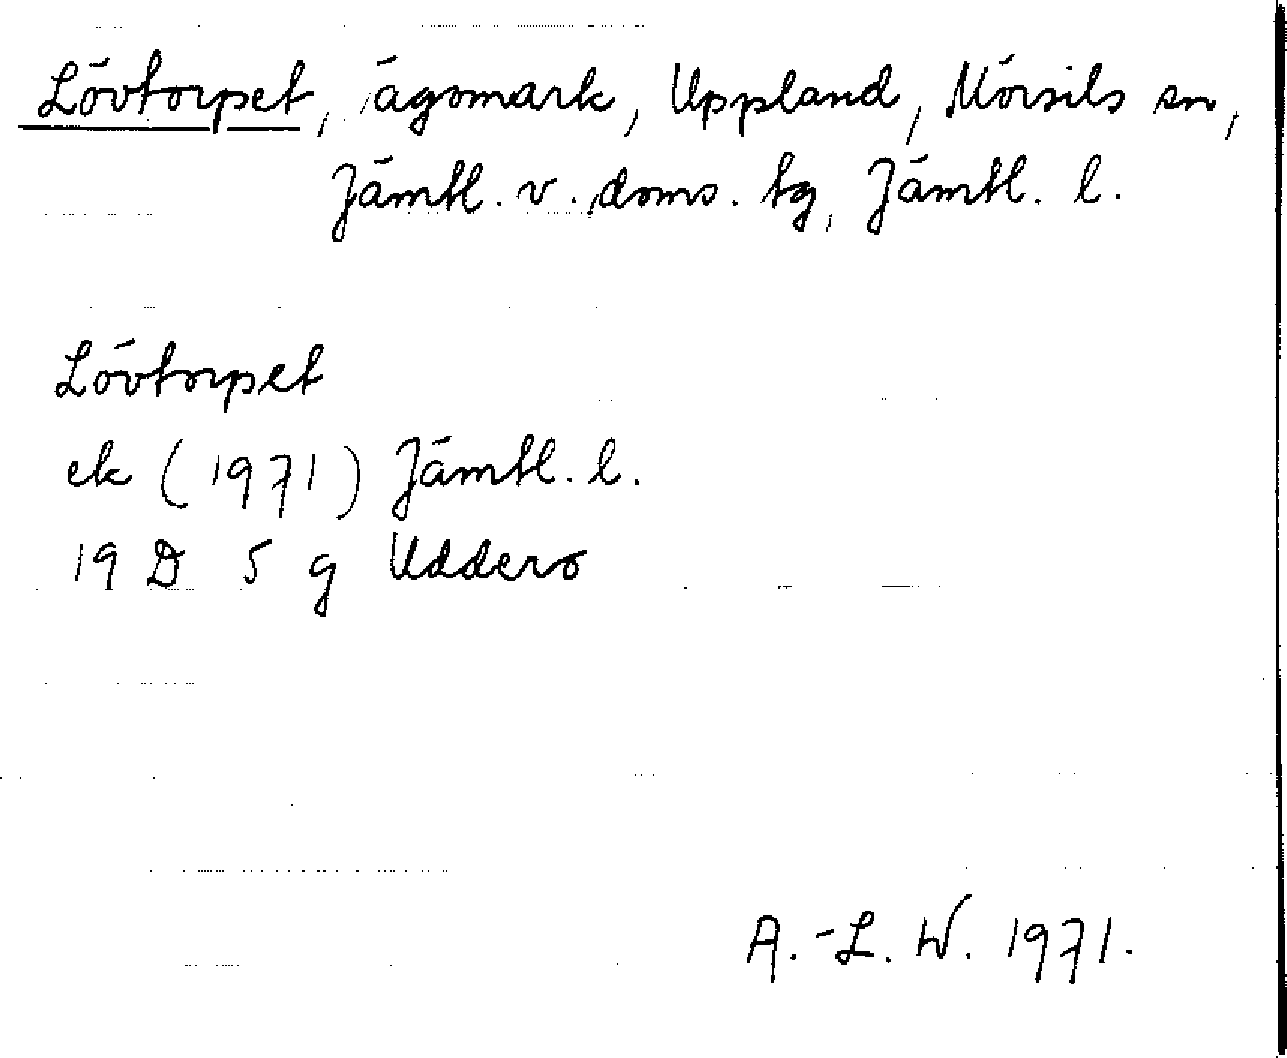 Lövtorpet, ägomark, Uppland, Mörsils sn,
Jämtl. v. doms. tg, Jämtl. l.
Lövtorpet
ek (1971) Jämtl. l.
19 D 5 g Uddero
A.-L. W. 1971.